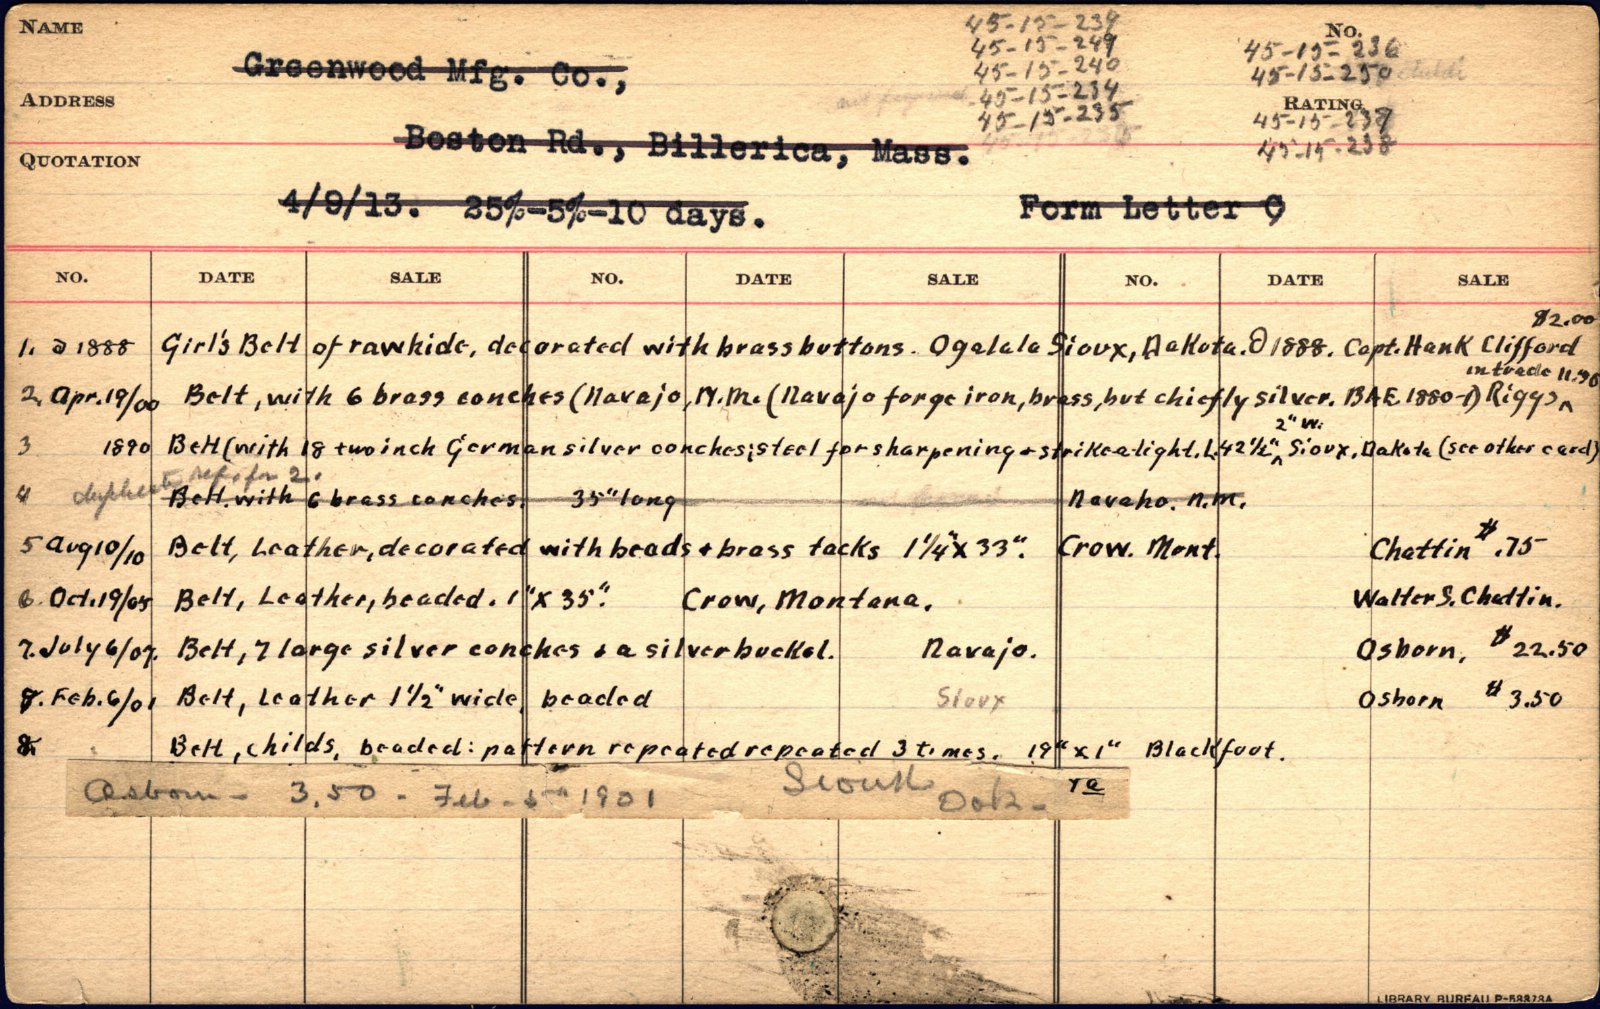 NAME
Greenwood Mfg. Co.,
45-15-239
45-15-249
45-15-240
45-15-234
45-15-235
No.
45-15-236
45-15-250
ADDRESS
RATING
45-15-237
45-15-238
Boston Rd., Billerica, Mass.
QUOTATION
4/9/13. 25%-5%-10 days. Form Letter C
NO. DATE SALE NO. DATE SALE NO. DATE SALE
$2.00
1. a 1888 Girl's Belt of rawhide, decorated with brass buttons. Ogalala Sioux, Dakota. 1888. Capt. Hank Clifford
in trade 11.30
2. Apr. 19/00 Belt, with 6 brass conches (Navajo, N.M. (Navajo forge iron, brass, but chiefly silver. BAE 1880-1) Riggs ^
2" w.
3 1890 Belt (with 18 two inch German silver conches; steel for sharpening + strike a light. L. 42 1/2" ^ Sioux, Dakota (see other card)
duplicate ref. for 2.
4 Belt. with 6 brass conches. 35" long Navaho. N.M.
5 Aug 10/10 Belt, Leather, decorated with beads + brass tacks 1 1/4" x 33". Crow. Mont. Chattin $ .75
6. Oct. 19/05 Belt, Leather, beaded. 1" x 35". Crow, Montana. Walter S. Chattin.
7. July 6/07. Belt, 7 large silver conches + a silver buckel. Navajo. Osborn, $22.50
8. Feb. 6/01 Belt, Leather 1 1/2" wide, beaded Sioux Osborn $3.50
8. Belt, childs, beaded: pattern repeated repeated 3 times. 19" x 1" Blackfoot.
Osborn - 3.50 - Feb - 1901 Sioux Dak -
LIBRARY BUREAU P-58878A